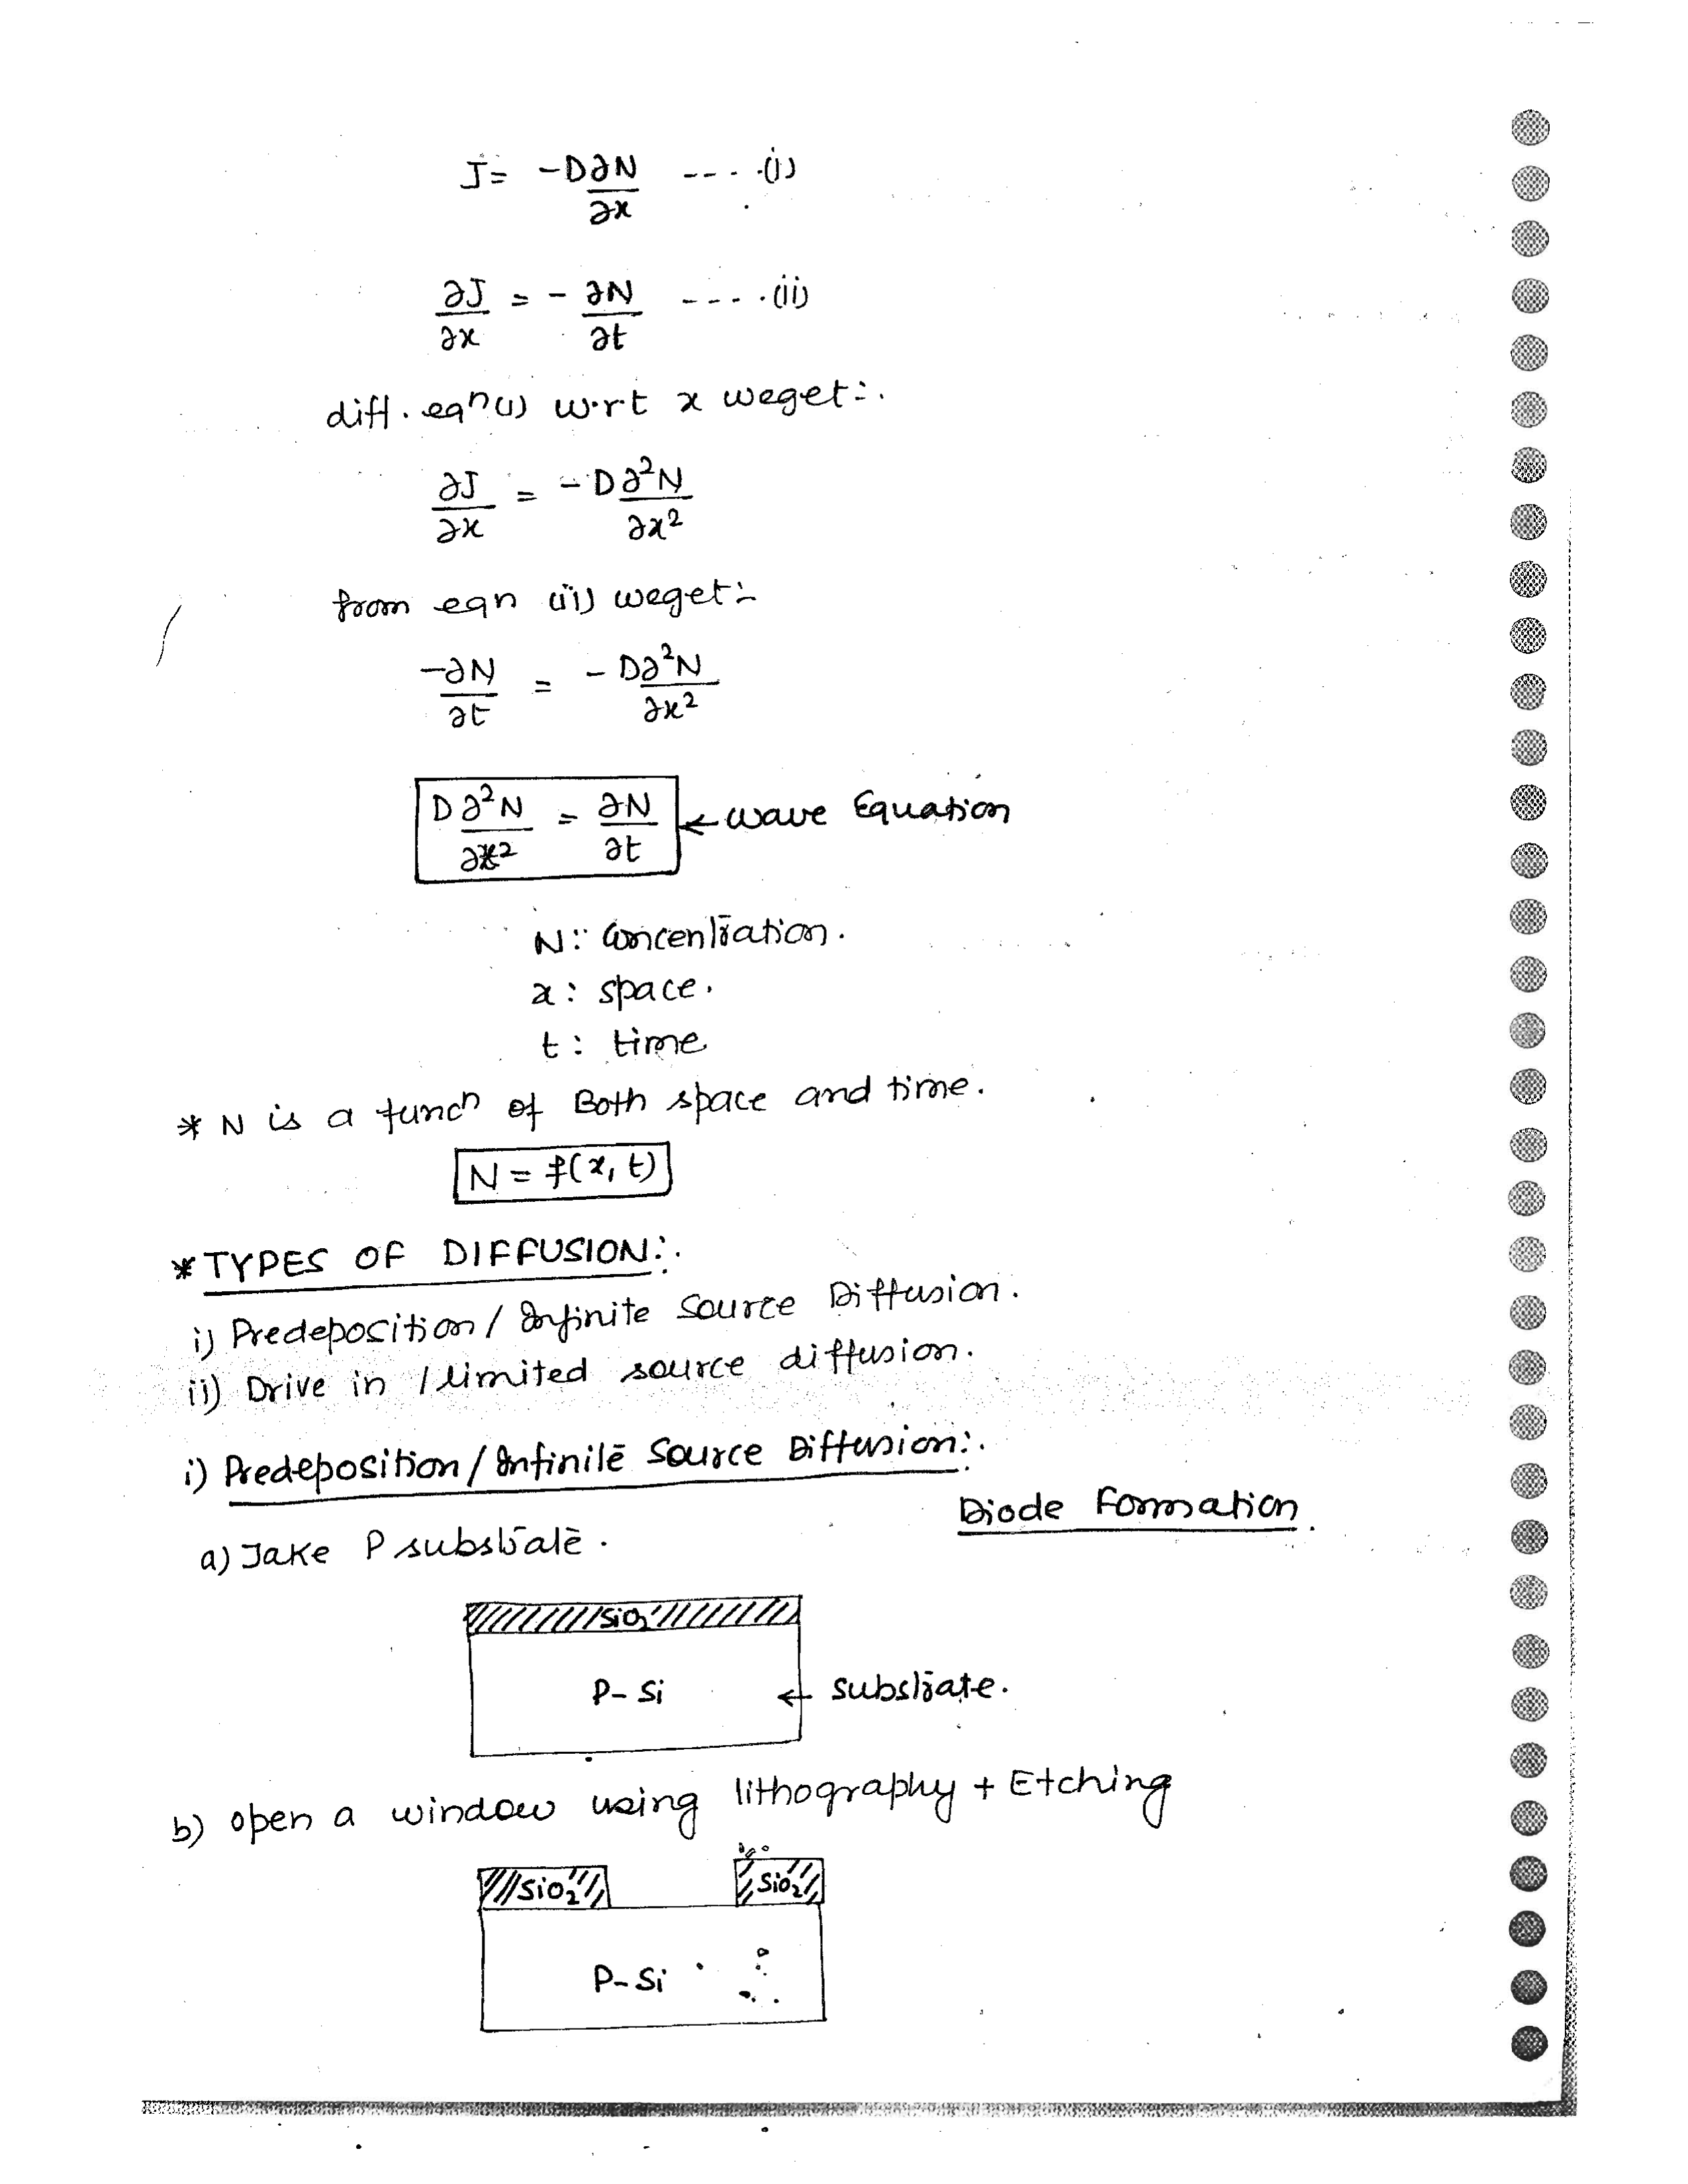 J = -D∂N/∂x ---- (i)
∂J/∂x = - ∂N/∂t ---- (ii)
diff. eqⁿ (i) w.r.t x weget:.
∂J/∂x = -D∂²N/∂x²
from eqn (ii) weget:-
-∂N/∂t = -D∂²N/∂x²
D∂²N/∂x² = ∂N/∂t ← wave Equation
N: Concentration.
x: space.
t: time
* N is a funcⁿ of Both space and time.
N = f(x, t)
* TYPES OF DIFFUSION:.
i) Predeposition / Infinite Source Diffusion.
ii) Drive in / limited source diffusion.
i) Predeposition / Infinite Source Diffusion:.
Diode Formation.
a) Take P substrate.
SiO₂
P-Si ← substrate.
b) open a window using lithography + Etching
SiO₂ SiO₂
P-Si